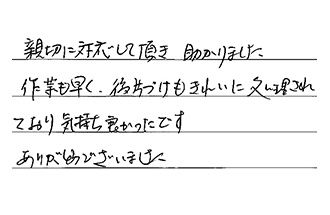 親切に対応して頂き 助かりました
作業も早く、後片づけもきれいに処理され
ており気持ち良かったです
ありがとうございました